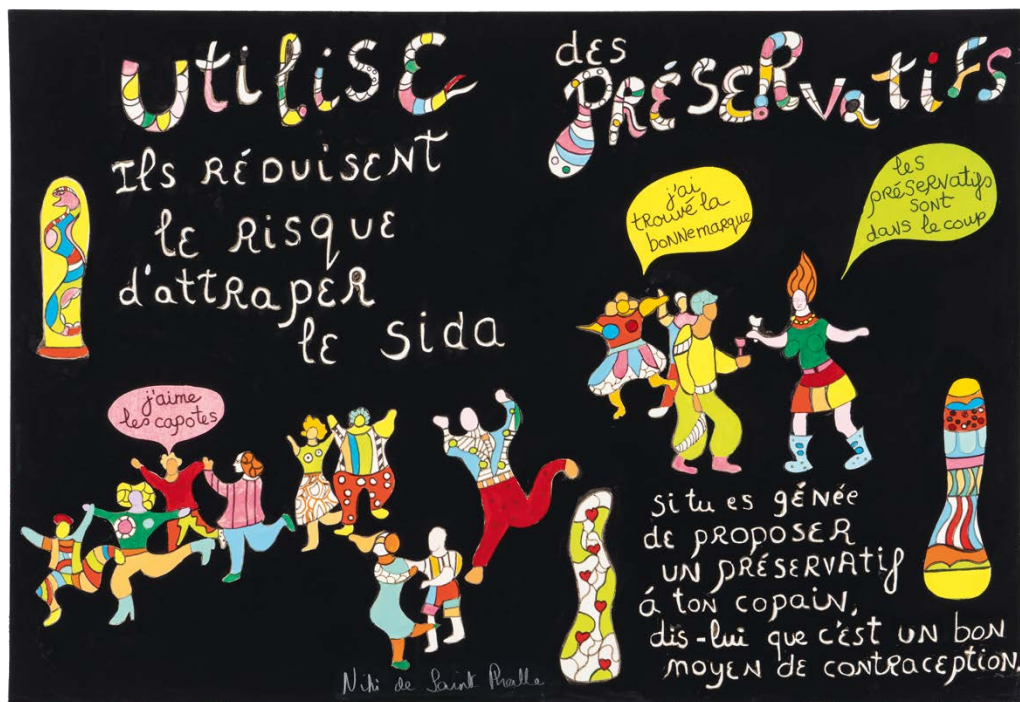 UtiLiSE
dES
PRÉSERVatiFS
Ils RÉDUISENT
lE RISQUE
d'attRAPER
lE Sida
j'ai
trouvé la
bonne marque
les
préservatifs
sont
dans le coup
j'aime
les capotes
si tu es gÉnÉe
dE PROPOSER
UN PRÉSERVATIf
á ton copain,
dis-lui que c'est un bon
moyen de contraception.
Niki de Saint Phalle